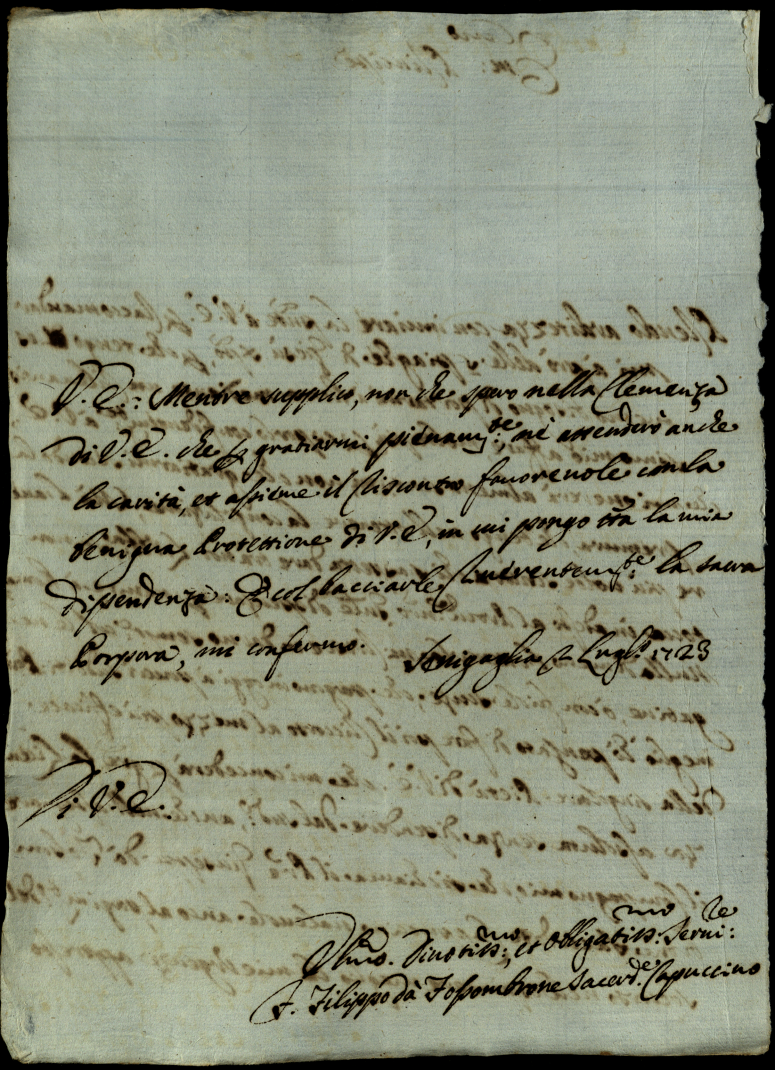 V. E.: Mentre supplico, non che spero nella Clemenza
di V. E. che p gratiarmi pienamte, ne attenderò anche
la carità, et assieme il Riscontro favorevole con la
benigna Protettione di V. E., in cui pongo tta la mia
dipendenza: E col bacciarle Riverentemte la sacra
Porpora, mi confermo.
Senigaglia 2 Lugl.o 1723
Di V. E.
Vmo. Divotiss:mo, et Obligatiss:mo Servi:re
F. Filippo dà Fossombrone Sacerd.e Capuccino